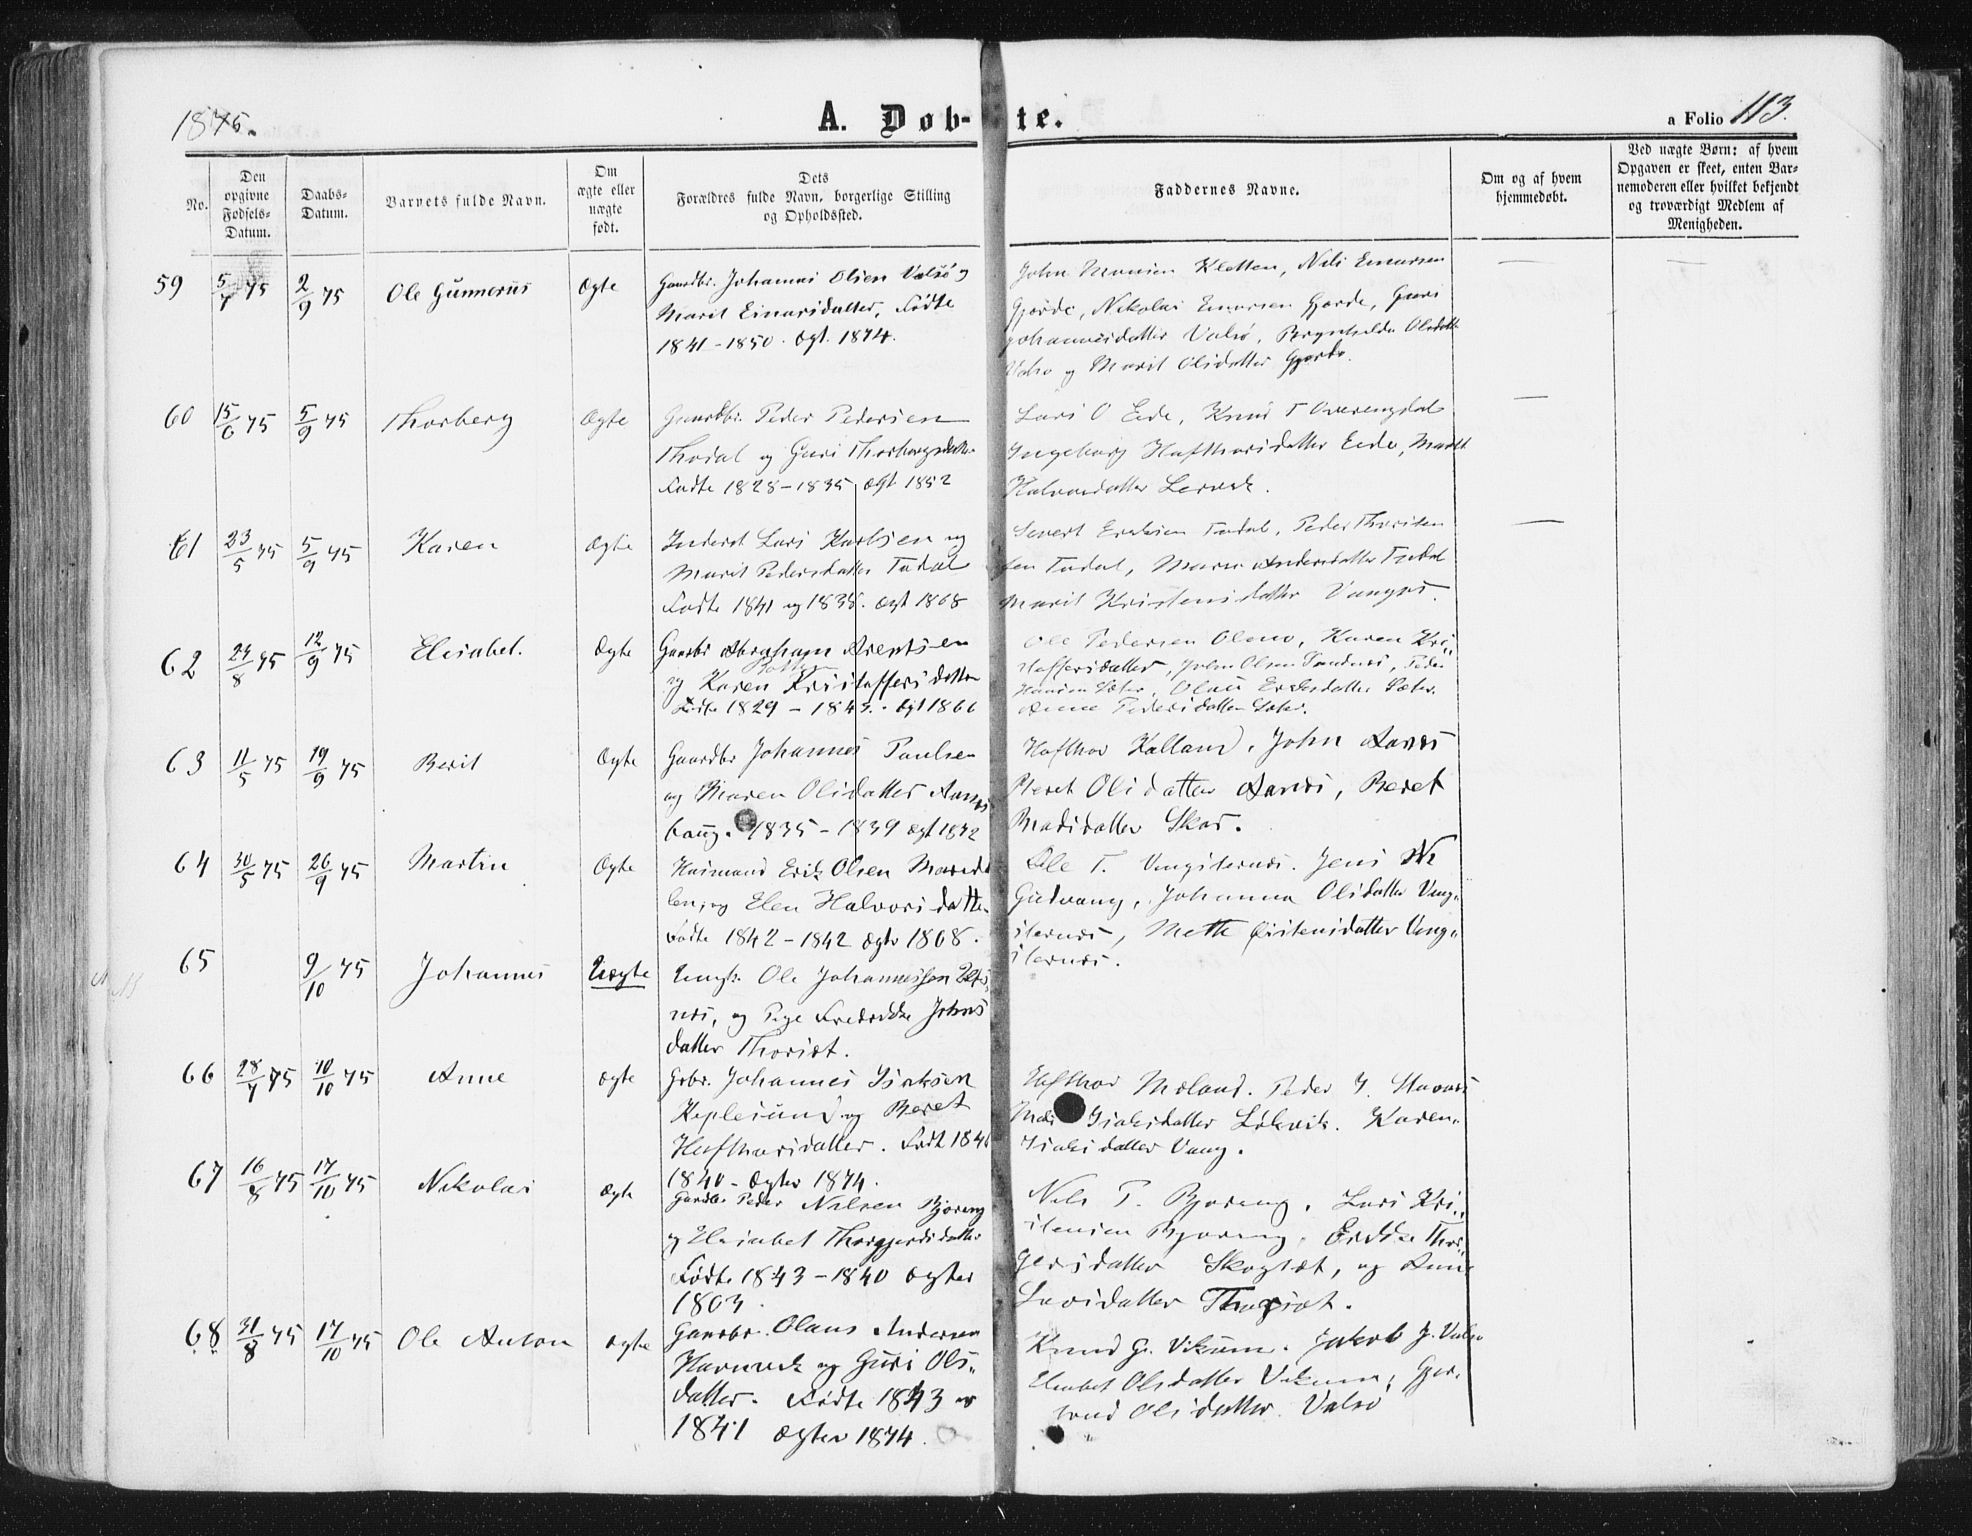 1875.
A. Døb-te.
a Folio 113.
No.
Den opgivne Fødsels-Datum.
Daabs-Datum.
Barnets fulde Navn.
Om ægte eller uægte født.
Dets Forældres fulde Navn, borgerlige Stilling og Opholdssted.
Faddernes Navne.
Om og af hvem hjemmedøbt.
Ved uægte Børn: af hvem Opgaven er skeet, enten Barnemoderen eller hvilket bekjendt og troværdigt Medlem af Menigheden.
59 5/7 75 2/9 75 Ole Gunnerus Ægte
Gaardbr. Johannes Olsen Valsø og
Marit Einarsdatter, Fødte
1841 - 1850. Ægt. 1874.
John Kletten, Nils Einarsen
Gjørde, Nikolai Einarsen Gjørde, Guri
Johannesdatter Valsø, Brynhilda Olsdatt.
Valsø og Marit Olsdatter Gjørde.
60 15/6 75 5/9 75 Thorberg Ægte
Gaardbr. Peder Pedersen
Thodal og Guri Thorbergsdatter
Fødte 1828 - 1835 Ægt 1852
Lars O Eide, Knud T
Ingeborg Hafthorsdatter Eide, Marit
Halvorsdatter Lervik.
61 23/5 75 5/9 75 Karen Ægte
Inderst Lars Karlsen og
Marit Pedersdatter Todal
Fødte 1841 og 1838. Ægt 1868
Sivert Eriksen Todal, Peder Thorsten
sen Todal, Maren Andersdatter Todal
Marit Kristensdatter
62 24/8 75 12/9 75 Elisabet. Ægte
Gaarbr Abraham Arentsen
og Karen Kristoffersdatter
Fødte 1829 - 1843. Ægt 1866
Ole Pedersen, Karen Kri„
stoffersdatter, John Olsen Sandnes, Peder
Hansen Sæter, Olau Eriksdatter Sæter.
Anne Pedersdatter Sæter.
63 11/5 75 19/9 75 Berit Ægte
Gaardbr Johannes Paulsen
og Maren Olsdatter Aarnes
haug. 1835 - 1839 Ægt 1872
Hafthor Kalland, John Aarnes
Beret Olsdatter Aarnes, Beret
Madsdatter Skar.
64 30/5 75 26/9 75 Martin Ægte
Husmand Erik Olsen
og Elen Halvorsdatter
Fødte 1842 - 1842 Ægtv 1868.
Ole T. Vengsternes. Jens
Gulvang, Johanna Olsdatter Veng„
sternes, Mette Kristensdatter Veng„
sternes.
65 9/10 75 Johannes Uægte
Ungk. Ole Johannessen
nes, og Pige Fredrikke Johns
datter Thorset.
66 28/7 75 10/10 75 Anne Ægte
Grbr. Johannes Isaksen
Keplesund og Beret
Hafthorsdatter. Født 1846
1840 - Ægtev 1874.
Hafthor Moland. Peder J.
Isaksdatter Løkvik. Karen„
Isaksdatter Vang.
67 16/8 75 17/10 75 Nikolai Ægte
Gaardbr Peder Nilsen Bjøreng
og Elisabet Thorgjersdatter
Fødte 1843 - 1840 Ægtev
1863.
Nils P. Bjøreng. Lars Kri„
stensen Bjøreng. Erikke Thor„
gersdatter Skogset, og Anne
Larsdatter Thorset.
68 31/8 75 17/10 75 Ole Anton Ægte
Gaardbr. Olaus Andersen
Harnvik og Guri Ols„
datter. Fødte 1843 og
1841 Ægtev 1874.
Knud G. Vikum. Jakob J. Valsø
Elisabet Olsdatter Vikum, Gjer„
trud Olsdatter Valsø